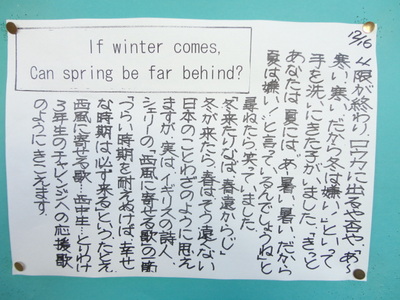 If winter comes,
Can spring be far behind?
12/16
4限が終わり、ロウカに出るや否や、「あ〜
寒い、寒い、だから冬は嫌い!」といって
手を洗いにきた子がいました。「きっと
あなたは夏には、「あ〜暑い、暑い、だから
夏は嫌い!」と言っているんでしょうね」と
尋ねたら、笑っていました。
「冬来たりなば、春遠からじ」
冬が来たら、春はそう遠くない
日本のことわざのように思え
ますが、実は、イギリスの詩人、
シェリーの「西風に寄せる歌」の
「つらい時期を耐えぬけば、幸せ
な時期は必ず来る」というたとえ
西風に寄せる歌…西中生…とりわけ
3年生のチャレンジへの応援歌
のようにきこえます。